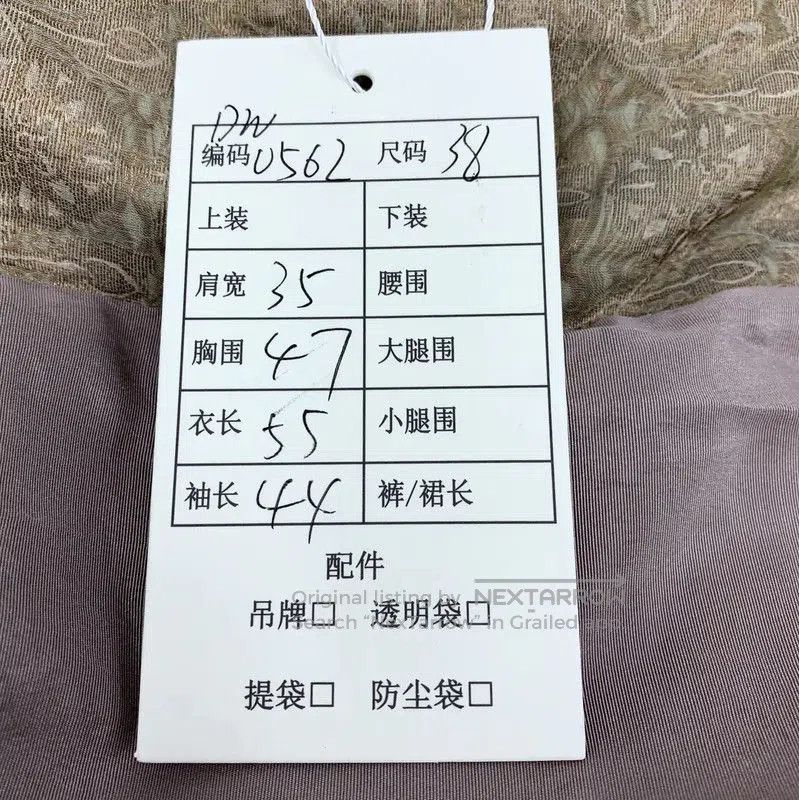 DW
编码 0562 尺码 38
上装 下装
肩宽 35 腰围
胸围 47 大腿围
衣长 55 小腿围
袖长 44 裤/裙长
配件
Original listing by NEXTARROW
吊牌□ 透明袋□
Search "NexTarrow" in Grailed app
提袋□ 防尘袋□